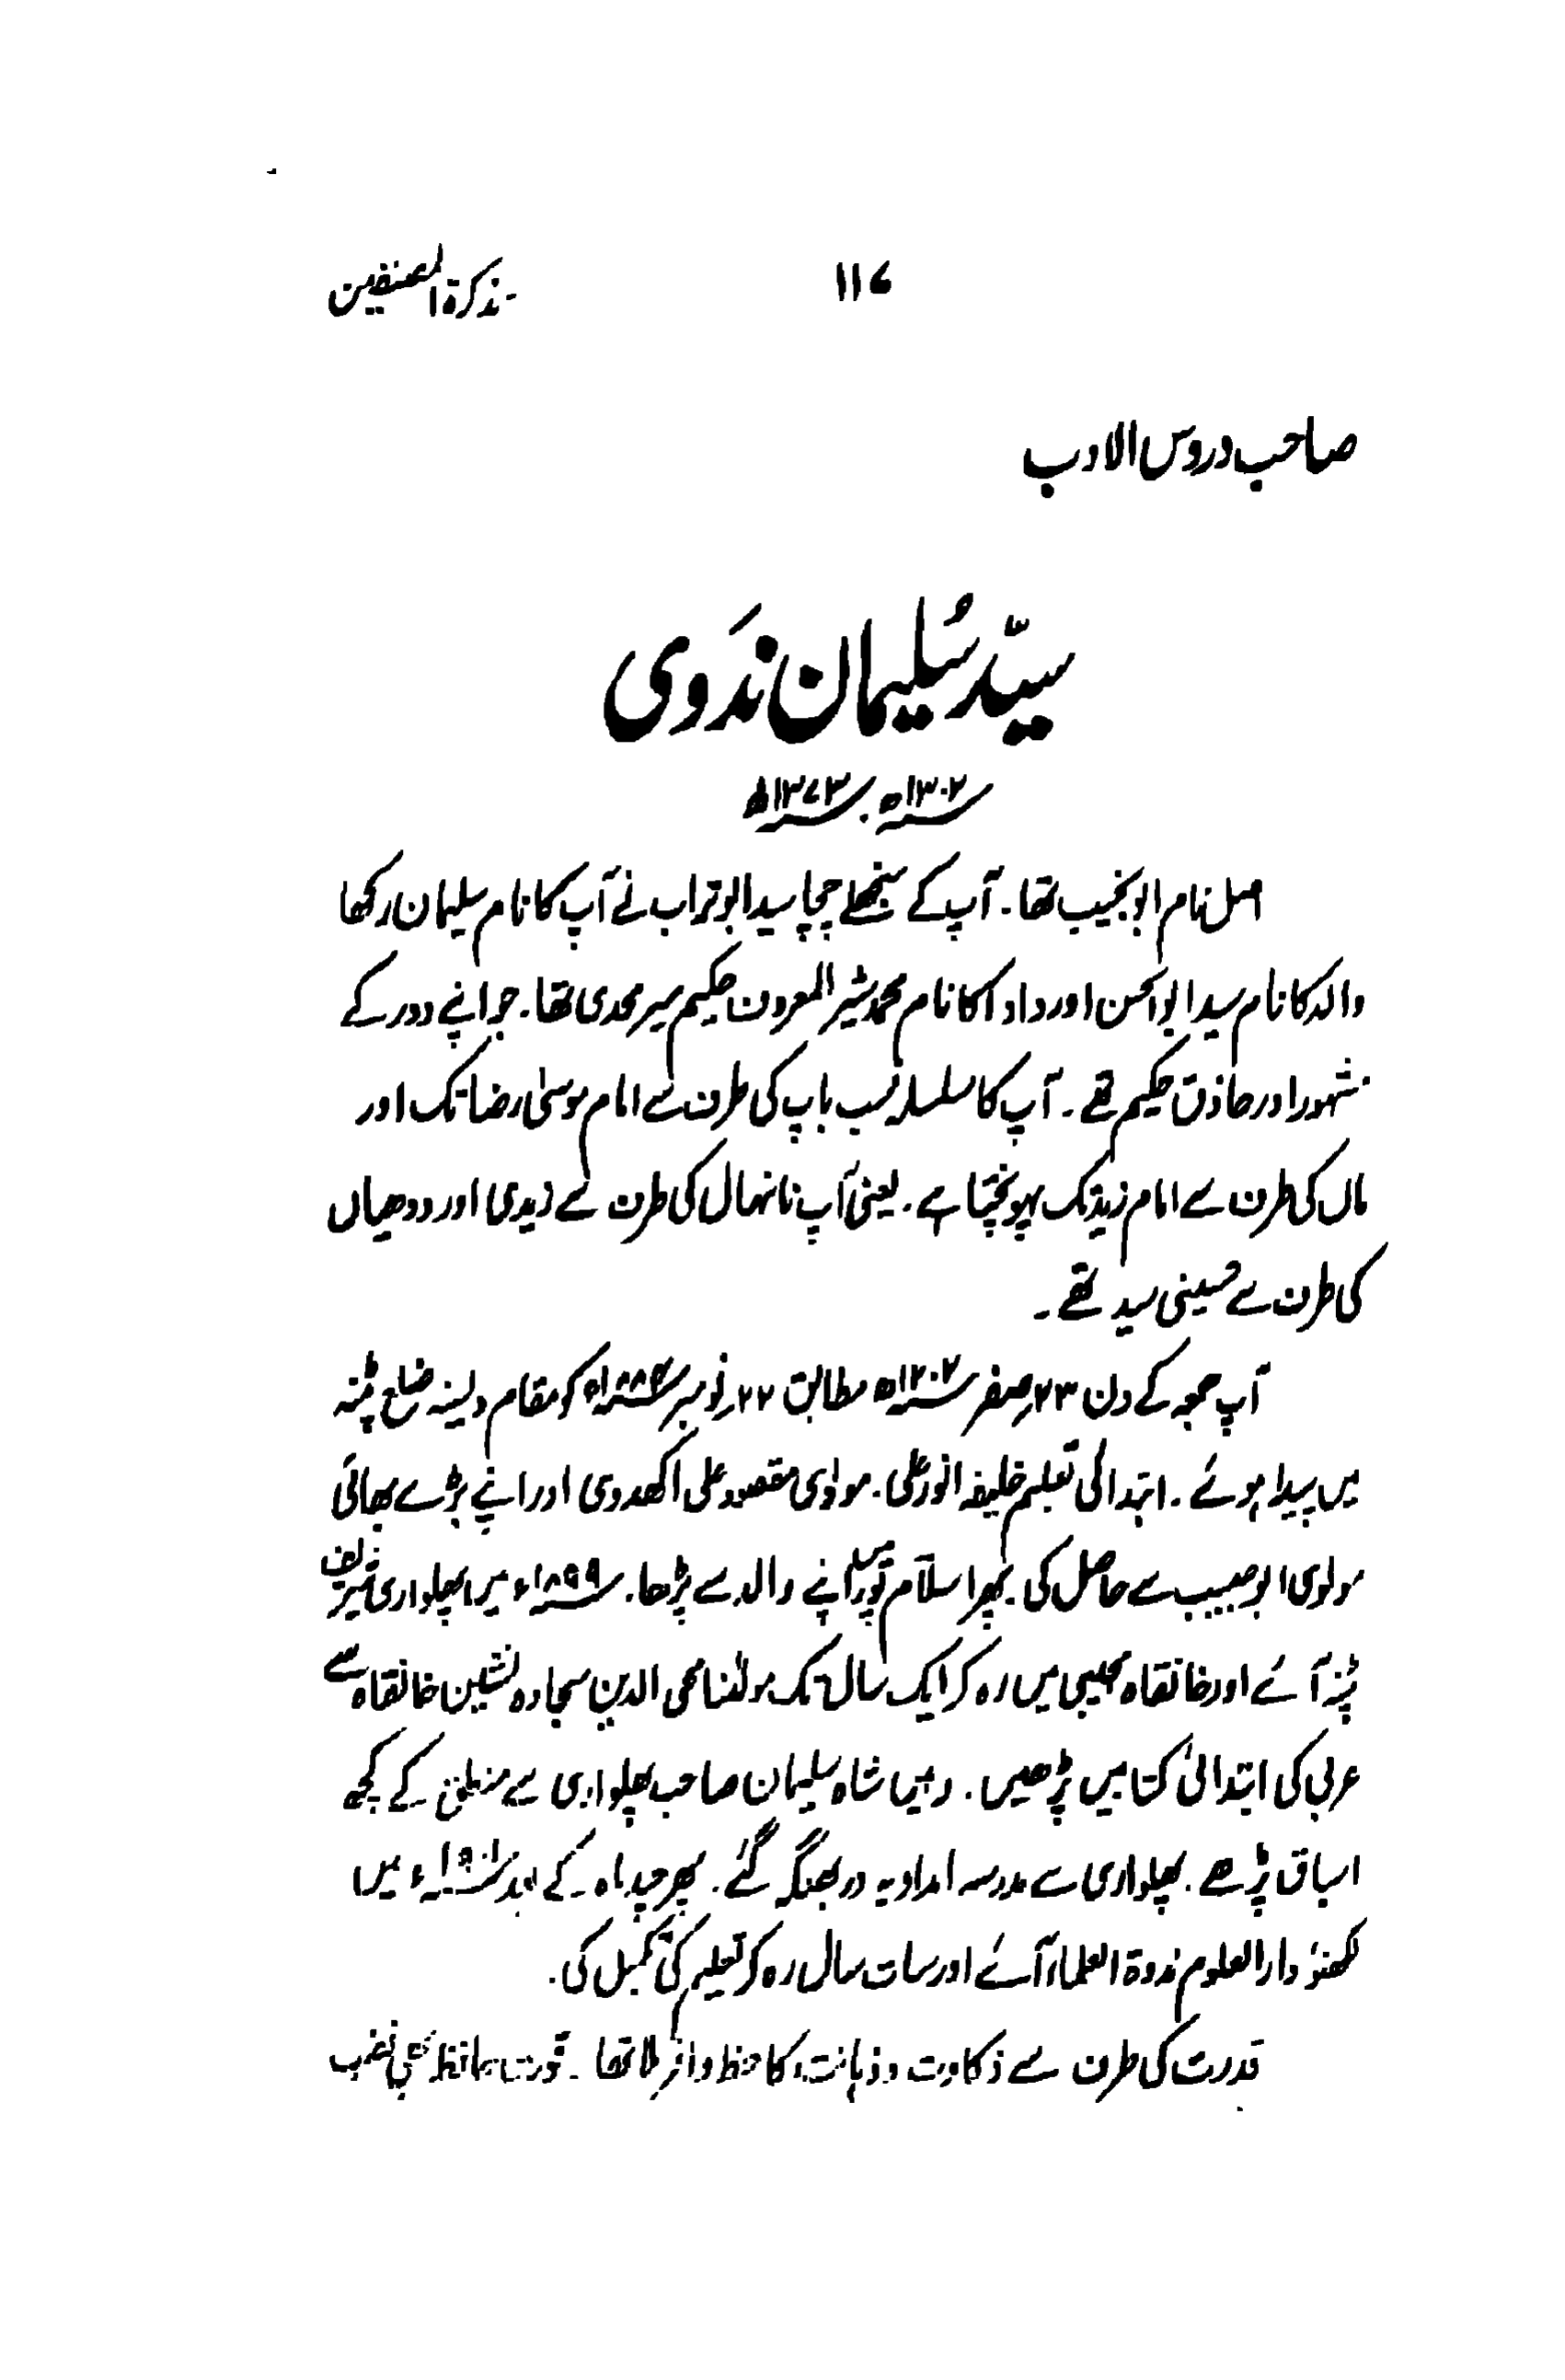 تذکرۃ المصنفین
۱۱۷
صاحب دروس الادب
سیّد سُلیمان ندَوی
۱۳۰۲ھ ۔ ۱۳۷۳ھ
اصل نام ابو نجیب تھا۔ آپ کے منجھلے چچا سید ابوتراب نے آپ کا نام سلیمان رکھا
والد کا نام سید ابوالحسن اور دادا کا نام محمد شیر المعروف حکیم میر محمدی تھا۔ جو اپنے دور کے
مشہور اور حاذق حکیم تھے۔ آپ کا سلسلہ نسب باپ کی طرف سے امام موسیٰ رضا تک اور
ماں کی طرف سے امام زید تک پہونچتا ہے۔ یعنی آپ نانہال کی طرف سے زیدی اور ددھیاں
کی طرف سے حسینی سید تھے۔
آپ جمعہ کے دن ۲۳ صفر ۱۳۰۲ھ مطابق ۲۲ نومبر ۱۸۸۴ء کو مقام دلینہ ضلع پٹنہ
میں پیدا ہوئے۔ ابتدائی تعلیم خلیفہ انور علی۔ مولوی مقصود علی اکھدوی اور اپنے بڑے بھائی
مولوی ابو حبیب سے حاصل کی۔ پھر اسلام پور میں اپنے والد سے پڑھا۔ ۱۸۹۹ء میں پھلواری شریف
پٹنہ آئے اور خانقاہ مجیبی میں رہ کر ایک سال تک مولٰنا محی الدین سجادہ نشین خانقاہ سے
عربی کی ابتدائی کتابیں پڑھیں۔ وہیں شاہ سلیمان صاحب پھلواری سے منطق کے کچھ
اسباق پڑھے۔ پھلواری سے مدرسہ امدادیہ دربھنگہ گئے۔ پھر چند ماہ کے بعد ۱۹۰۱ء میں
لکھنؤ دارالعلوم ندوۃ العلماء آئے اور سات سال رہ کر تعلیم کی تکمیل کی۔
قدرت کی طرف سے ذکاوت و ذہانت کا حظ وافر ملا تھا۔ قوت حافظہ بھی غضب